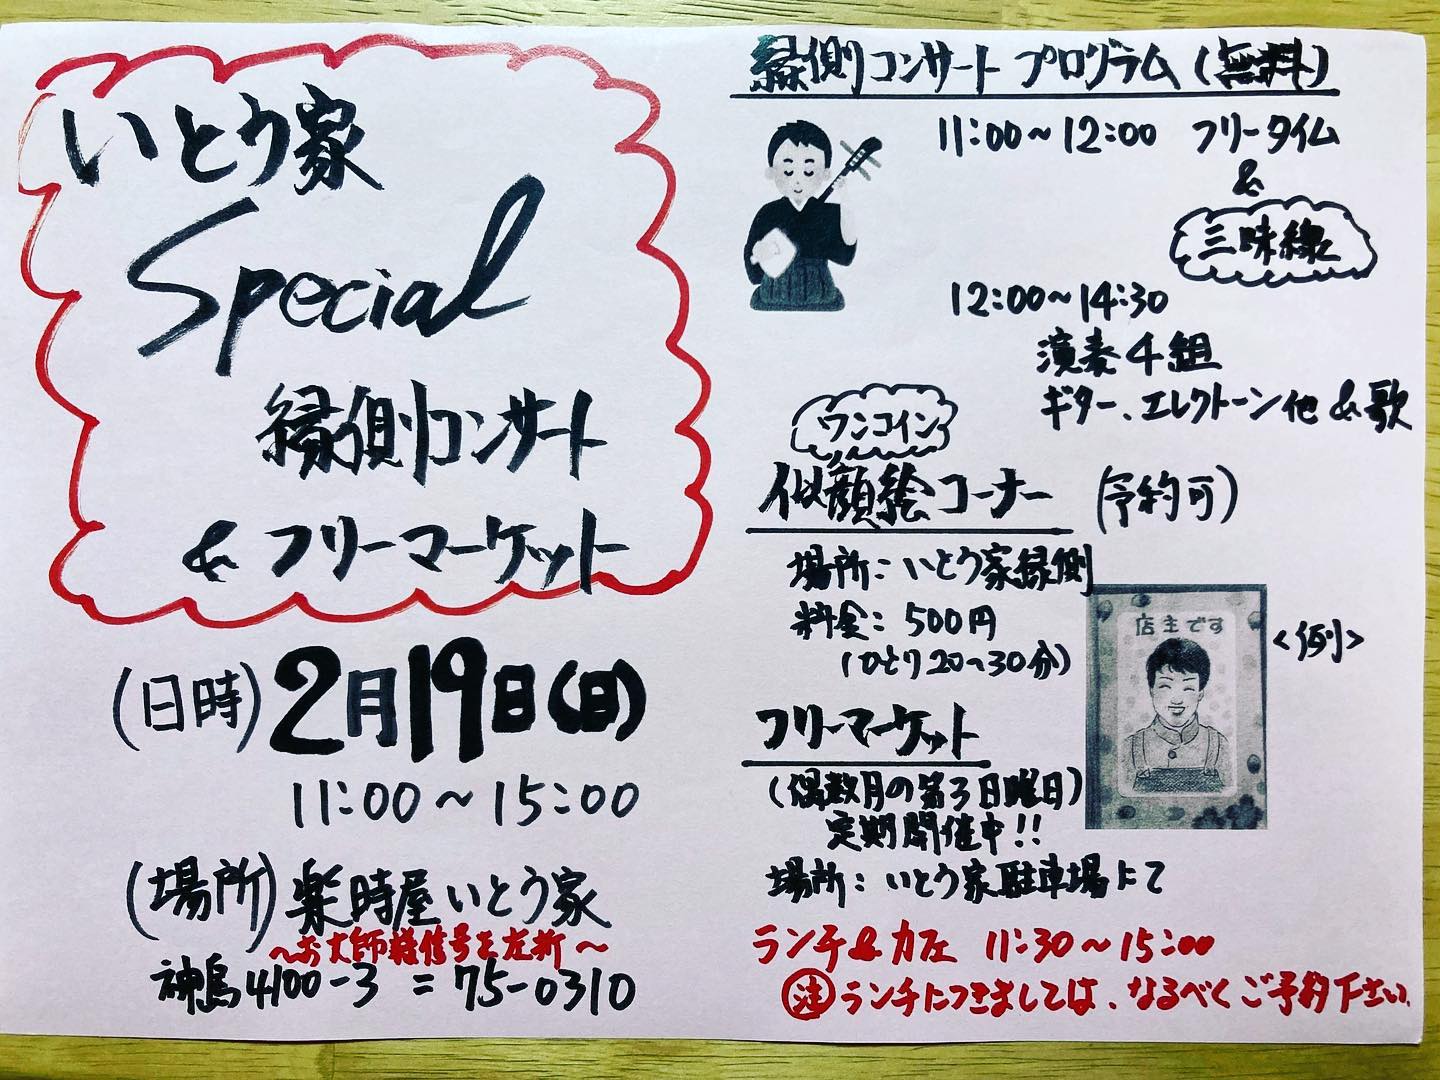 いとう家
Special
縁側コンサート
& フリーマーケット
(日時) 2月19日(日)
11:00～15:00
(場所) 楽時屋いとう家
～お大師様信号を左折～
神島4100-3 = 75-0310
縁側コンサート プログラム (無料)
11:00～12:00 フリータイム
&
三味線
12:00～14:30
演奏4組
ギター、エレクトーン他 & 歌
ワンコイン
似顔絵コーナー (予約可)
場所: いとう家縁側
料金: 500円
(ひとり20～30分)
店主です
<例>
フリーマーケット
(偶数月の第3日曜日)
定期開催中!!
場所: いとう家駐車場にて
ランチ&カフェ 11:30～15:00
注 ランチにつきましては、なるべくご予約下さい.